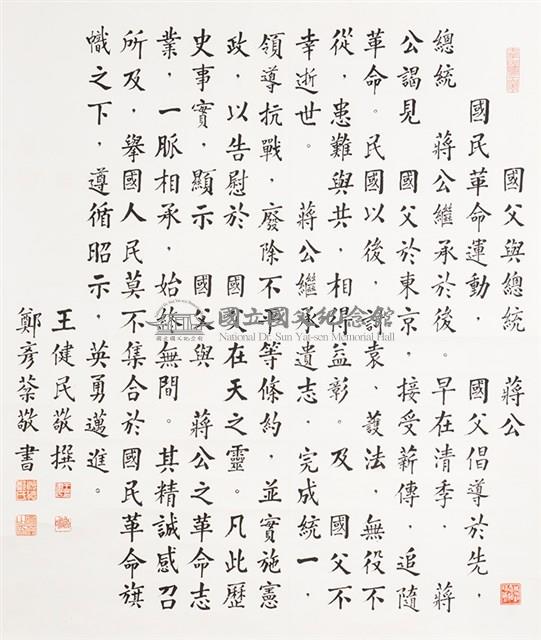 國父與總統　蔣公
國民革命運動，　國父倡導於先，
總統　蔣公繼承於後。　早在清季，　蔣
公謁見　國父於東京，接受薪傳，追隨
革命。民國以後，討袁、護法，無役不
從，患難與共，相得益彰。及　國父不
幸逝世。　蔣公繼承遺志，完成統一，
領導抗戰，廢除不平等條約，並實施憲
政，以告慰於　國父在天之靈。凡此歷
史事實，顯示　國父與　蔣公之革命志
業，一脈相承，始終無間。其精誠感召
所及，舉國人民莫不集合於國民革命旗
幟之下，遵循昭示，英勇邁進。
王健民敬撰
鄭彥棻敬書
國立國父紀念館
National Dr. Sun Yat-sen Memorial Hall